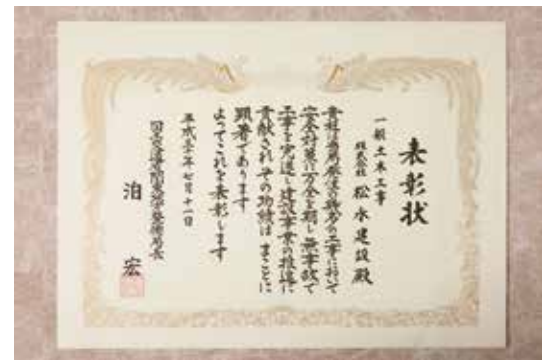 表彰状
一般土木工事
株式会社 松永建設殿
貴社は当局発注の標名の工事において
安全対策に万全を期し無事故で
工事を完遂し建設事業の推進に
貢献されその功績はまことに
顕著であります
よってこれを表彰します
平成三十年七月十一日
国土交通省関東地方整備局長
泊 宏